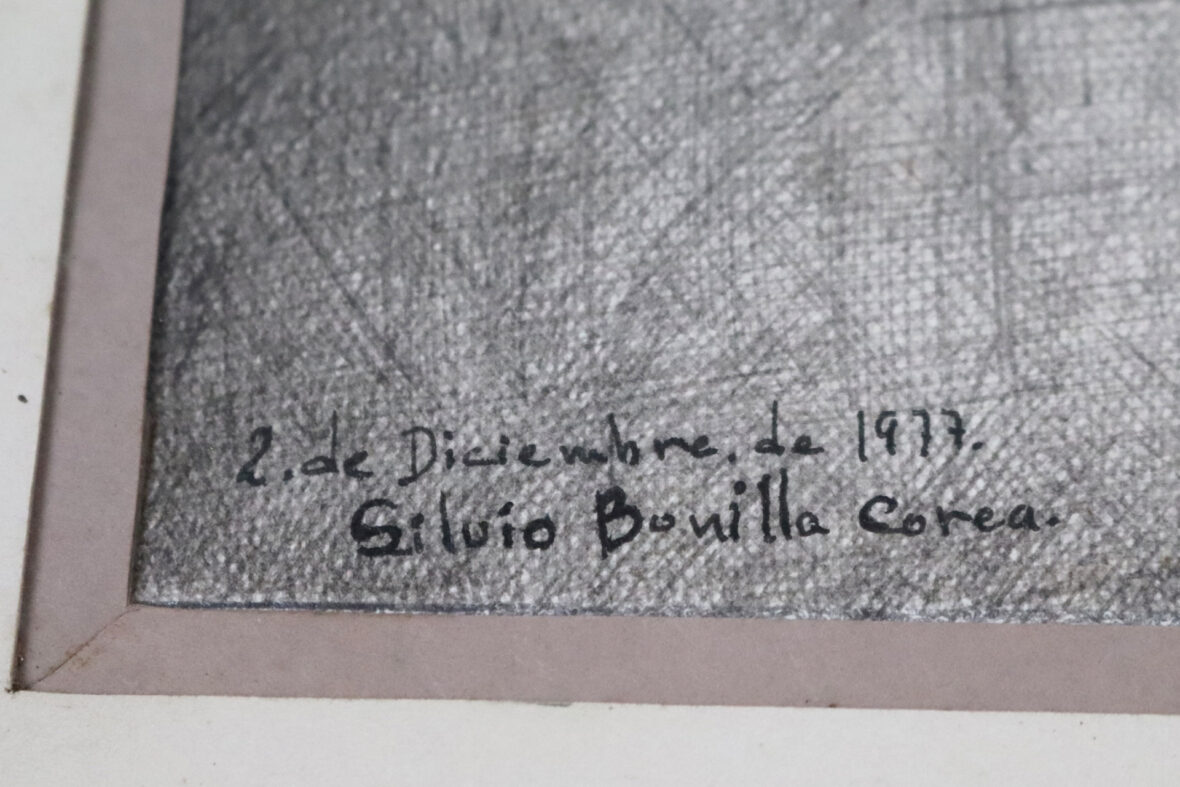 2. de Diciembre. de 1977.
Silvio Bonilla Corea.